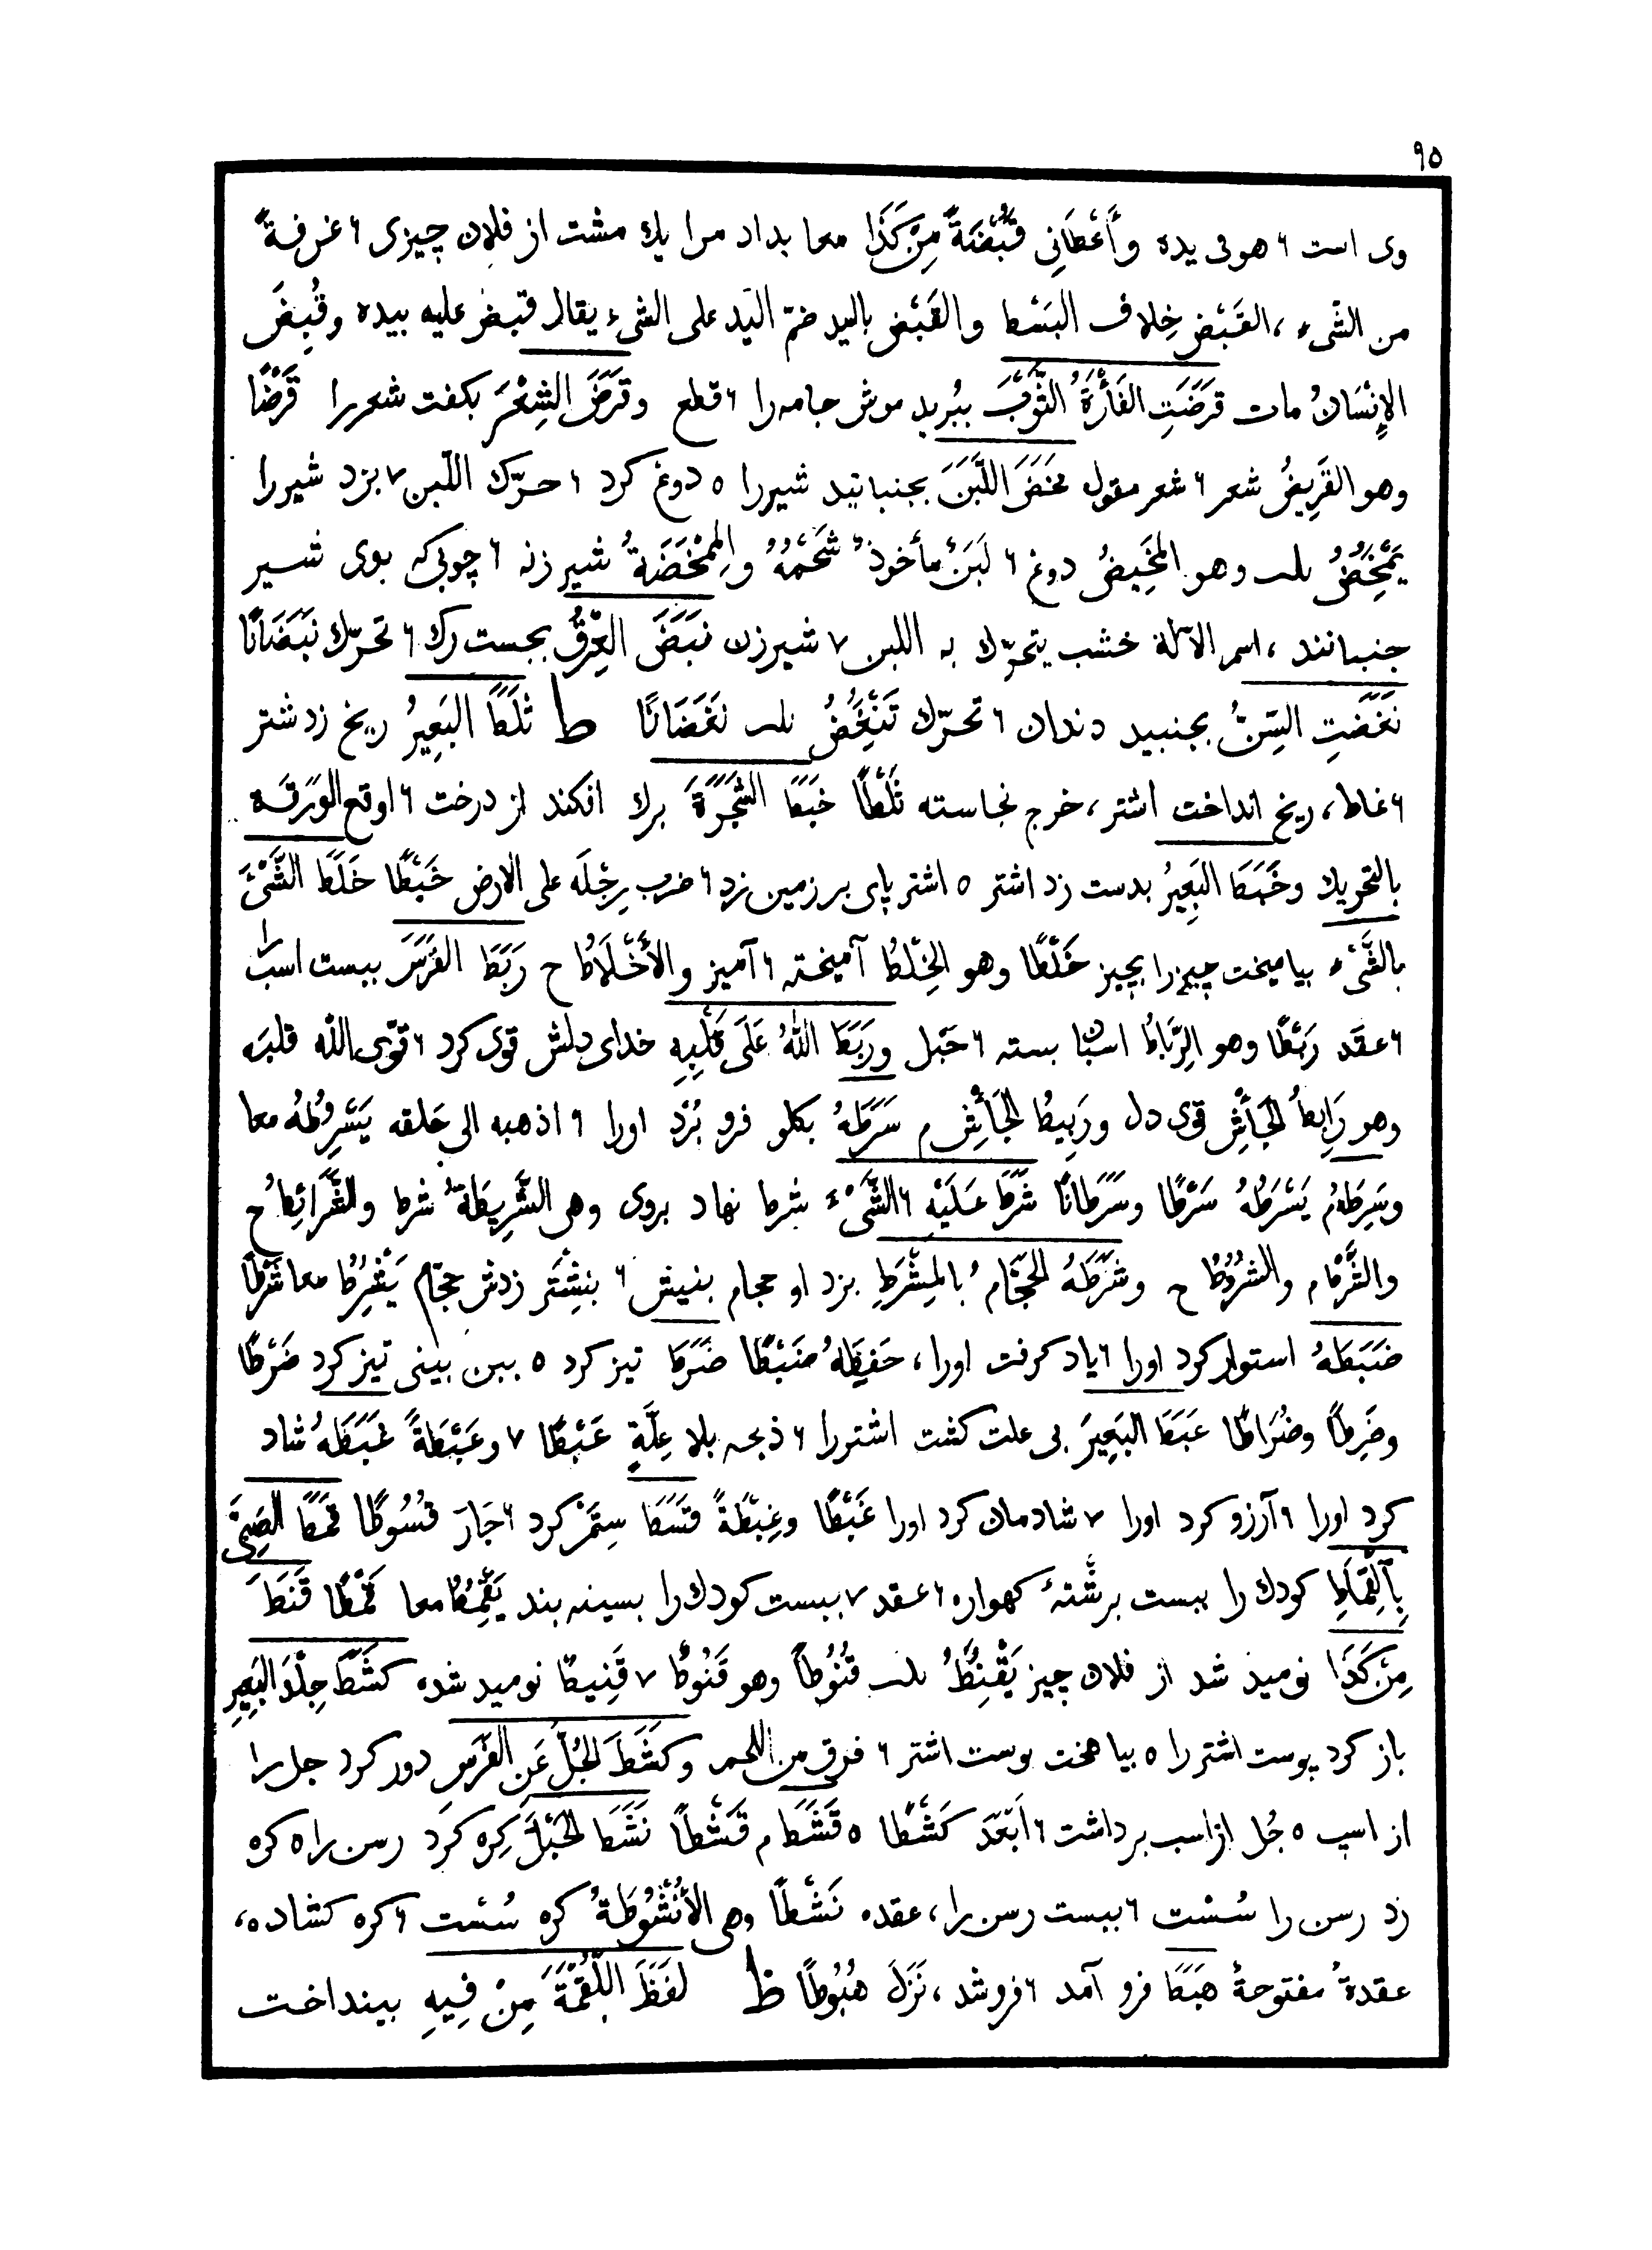 ٩٥
وى است ٦ هو فى يده وأَعْطَانِى قُبْضَةً مِنْ كَذَا معا بداد مرا يك مشت از فلان چيزى ٦ غرفةً
من الشىء ، القَبْض خِلاف البَسْط والقَبْض باليد ضمّ اليَد على الشىء يقال قبض عليه بيده وقُبِضَ
الإِنْسَانُ مات قَرَضَتِ الفَأْرَةُ الثَّوْبَ ببُريد موش جامه را ٦ قطع وقَرَضَ الشِعْرَ بكفت شعر را قَرْضًا
وهو القَرِيضُ شعر ٦ شعر مقول مَخَضَ اللَّبَنَ بجنبانيد شير را ٥ دوغ كرد ٦ حرّك اللّبن ٧ بزد شير را
يَمْخُضُ وهو المَخِيضُ دوغ ٦ لَبَنٌ مأخوذٌ شَحْمُهُ والمِمْخَضَةُ شير زنه ٦ چوبى كه بوى شير
جنبانند ، اسم الآلة خشب يتحرّك به اللبن ٧ شيرزن نَبَضَ العِرْقُ بجست رك ٦ تحرّك نَبَضَانًا
نَغَضَتِ السِّنُّ بجنبيد دندان ٦ تحرّك تَنْغُضُ نَغَضَانًا ط ثَلَطَ البَعِيرُ ريخ زد شتر
٦ غاط ، ريخ انداخت اشتر ، خرج نجاسته ثَلْطًا خَبَطَ الشَّجَرَةَ برك افكند از درخت ٦ اوقع الوَرَقَة
بالتحريك وخَبَطَ البَعِيرُ بدست زد اشتر ٥ اشتر پاى بر زمين زد ٦ ضرب رِجْلَه على الارض خَبْطًا خَلَطَ الشَّىْءَ
بالشَّىْءِ بياميخت چيز را بچيز خَلْطًا وهو الخِلْطُ آميخته ٦ آميز والأَخْلَاطُ ح رَبَطَ الفَرَسَ ببست اسب را
٦ عقد رَبْطًا وهو الرِّبَاطُ اسبان بسته ٦ حَبْل ورَبَطَ اللهُ عَلَى قَلْبِهِ خداى دلش قوى كرد ٦ قوّى الله قلبَه
وهو رَابِطُ الجَأْشِ قوى دل ورَبِيطُ الجَأْشِ م سَرَطَهُ بكلو فرو بُرْد اورا ٦ اذهبه الى حَلقه يَسْرُطُهُ معا
وسَرِطَهُ م يَسْرَطُهُ سَرْطًا وسَرَطَانًا شَرَطَ عَلَيْهِ ٦ الشَّىْءَ شرط نهاد بروى وهى الشَّرِيطَةُ شرط والشَّرَائِطُ ح
والشَّرْطُ م والشُرُوطُ ح وشَرَطَهُ الحَجَّامُ بالمِشْرَطِ بزد او حجام بنيش ٦ بنِشْتَر زدش حجّام يَشْرِطُ معا شَرْطًا
ضَبَطَهُ استوار كرد اورا ٦ ياد كرفت اورا ، حَفِظَهُ ضَبْطًا ضَرَطَ تيز كرد ٥ ببن بينى تيز كرد ضَرْطًا
وضَرِطًا وضُرَاطًا عَبَطَ البَعِيرَ بى علت كشت اشتر را ٦ ذبحه بلا عِلَّةٍ عَبْطًا ٧ وعَبْطَةً غَبَطَهُ شاد
كرد اورا ٦ آرزو كرد اورا ٧ شادمان كرد اورا غَبْطًا وغِبْطَةً قَسَطَ سِتَمْ كرد ٦ جَارَ قُسُوطًا قَمَطَ الصَبِىَّ
بِالْقِمَاطِ كودك را ببست برشتهٔ كهواره ٦ عقد ٧ ببست كودك را بسينه بند يَقْمُطُ معا قَمْطًا قَنَطَ
مِنْ كَذَا نوميذ شد از فلان چيز يَقْنِطُ قُنُوطًا وهو قَنُوطٌ ٧ قَنِيطٌ نوميد شده كَشَطَ جِلْدَ البَعِيرِ
باز كرد پوست اشتر را ٥ بياهخت پوست اشتر ٦ فرق من اللحم وكَشَطَ الجُلَّ عَنِ الفَرَسِ دور كرد جل را
از اسپ ٥ جُل از اسب برداشت ٦ اَبْعَدَ كَشْطًا ٥ قَشَطَ م قَشْطًا نَشَطَ الحَبْلَ كِره كَرد رسن را ٥ كره
زد رسن را سُسْت ٦ ببست رسن را ، عقده نَشْطًا وهى الأُنْشُوطَةُ كره سُسْت ٦ كره كشاده ،
عقدةٌ مفتوحةٌ هَبَطَ فرو آمد ٦ فروشد ، نَزَلَ هُبُوطًا ظ لَفَظَ اللُّقْمَةَ مِنْ فِيهِ بينداخت